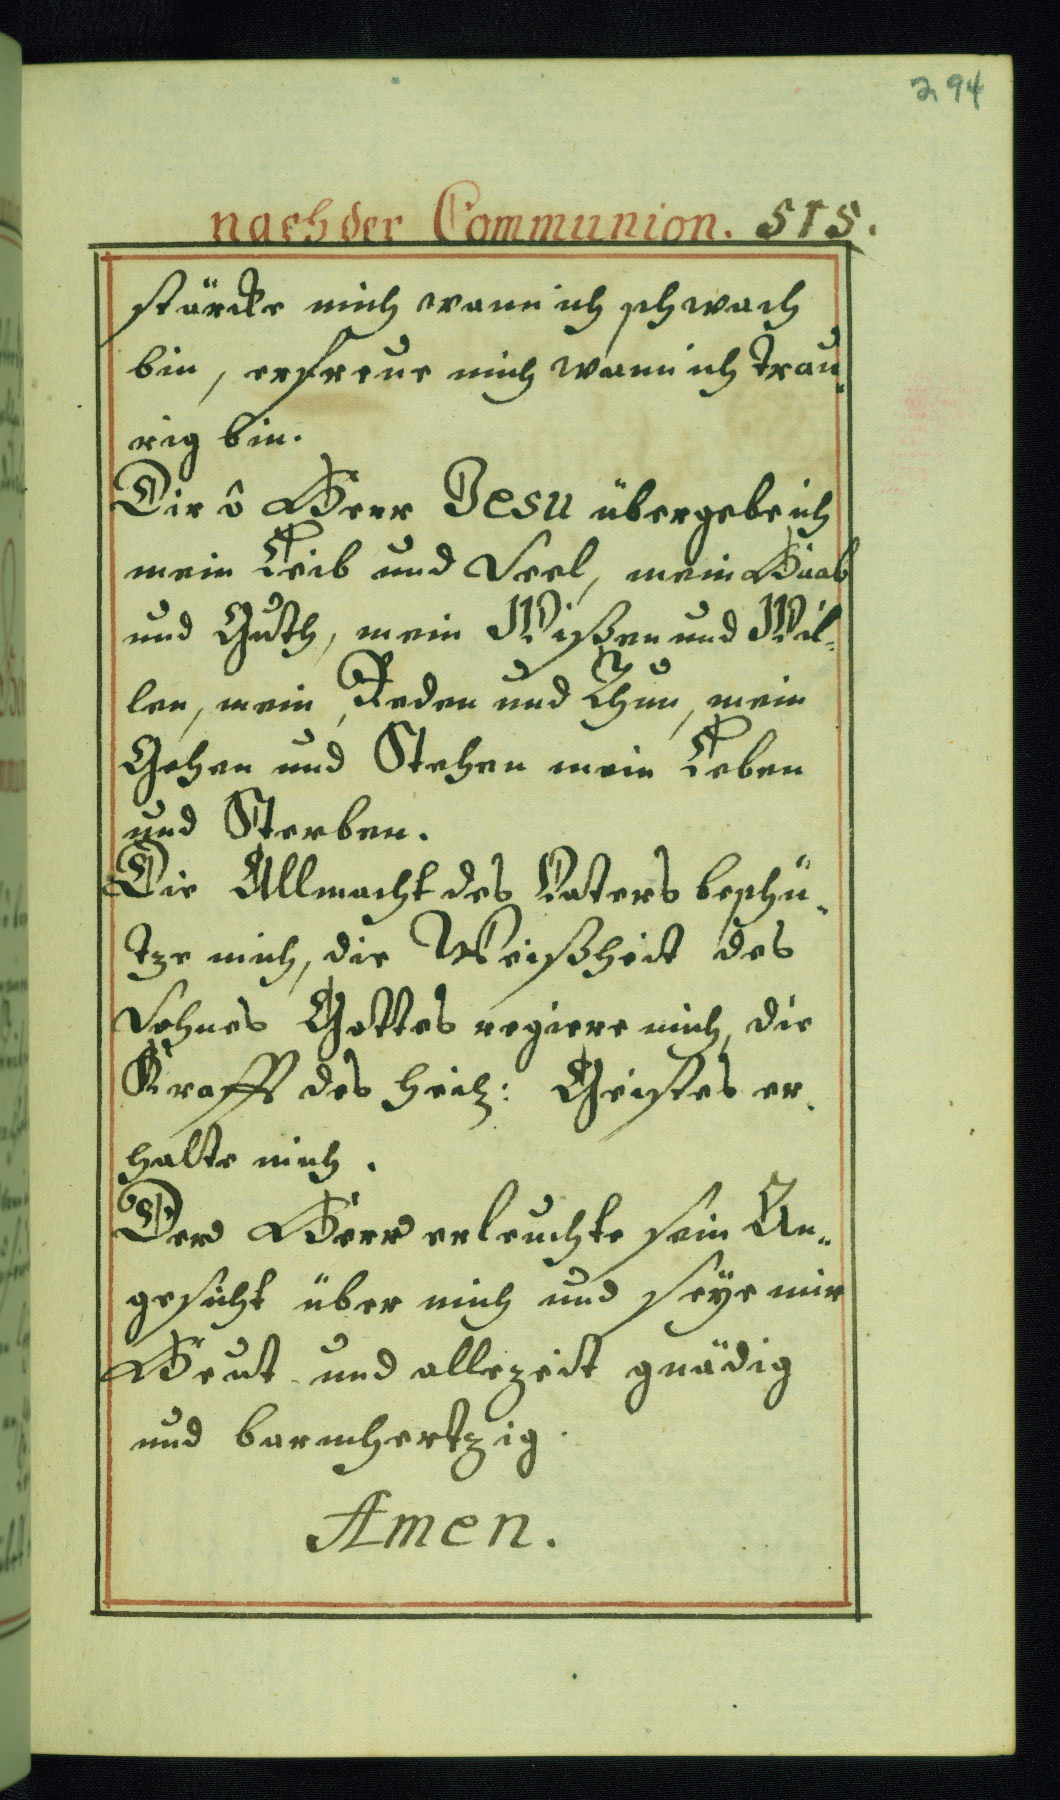 294
nach der Communion. 515.
stärcke mich wann ich schwach
bin, erfreue mich wann ich trau-
rig bin.
Dir ô Herr Jesu übergebe ich
mein Leib und Seel, mein Haab
und Guth, mein Wißen und Wil-
len, mein Reden und Thun, mein
Gehen und Stehen mein Leben
und Sterben.
Die Allmacht des Vaters beschü-
tze mich, die Weißheit des
Sohnes Gottes regiere mich, die
Krafft des heilg: Geistes er-
halte mich.
Der Herr erleuchte sein An-
gesicht über mich und seÿe mir
Heut und allezeit gnädig
und barmhertzig.
Amen.